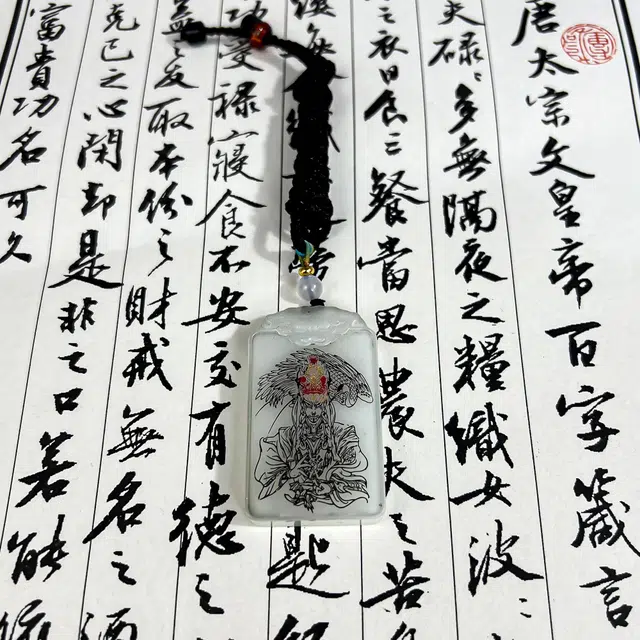 唐太宗文皇帝百字箴言
夫碌〻多無隔夜之糧織女波〻
之衣日食三餐當思農夫之苦
每
匙
功受祿寢食不安交有德之
之友取本份之財戒無名之酒
克己之心閉却是非之口若能依
富貴功名可久